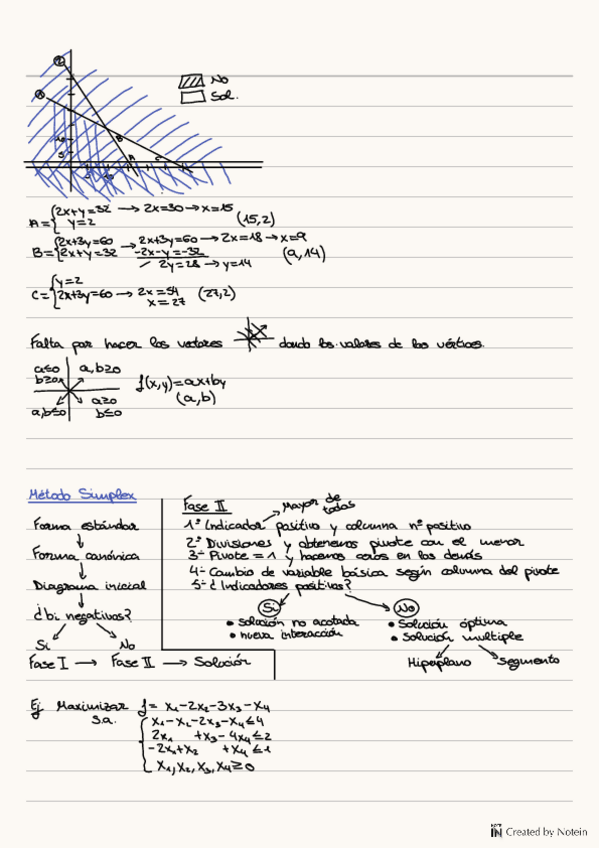 No
Sol.
A= { 2x+y=32 → 2x=30 → x=15
y=2 (15,2)
B= { 2x+3y=60 → 2x+3y=60 → 2x=18 → x=9
2x+y=32 -2x-y=-32 (9,14)
2y=28 → y=14
C= { y=2
2x+3y=60 → 2x=54 (27,2)
x=27
Falta por hacer los vectores dando los valores de los vértices.
a≤0 a,b≥0
b≥0
f(x,y)=ax+by
(a,b)
a≥0
a,b≤0 b≤0
Método Simplex
Forma estándar
↓
Forma canónica
↓
Diagrama inicial
↓
¿bi negativos?
Si No
Fase I → Fase II → Solución
Fase II
Mayor de todos
1º Indicador positivo y columna nº positivo
2º Divisiones y obtenemos pivote con el menor
3- Pivote = 1 y hacemos ceros en los demás
4- Cambio de variable básica según columna del pivote
5- ¿Indicadores positivos?
Si No
• Solución no acotada
• nueva interacción
• Solución óptima
• Solución multiple
Hiperplano Segmento
Ej Maximizar f= x₁-2x₂-3x₃-x₄
s.a. x₁-x₂-2x₃-x₄≤4
2x₁ +x₃-4x₄≤2
-2x₁+x₂ +x₄≤1
x₁,x₂,x₃,x₄≥0
NOTE IN Created by Notein